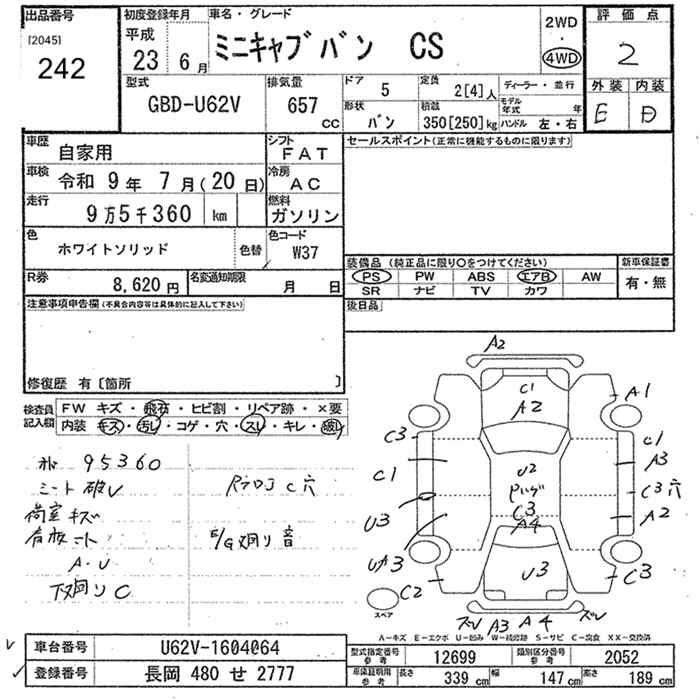 出品番号
[2045]
242
初度登録年月
平成 23 年 6 月
車名・グレード
ミニキャブバン CS
2WD
・
4WD
評価点
2
外装 内装
E D
型式
GBD-U62V
排気量
657 CC
ドア 5
形状 バン
定員 2[4]人
積載 350[250]kg
ディーラー・並行
モデル年式 年
ハンドル 左・右
車歴 自家用
シフト FAT
車検 令和 9年 7月(20日)
冷房 AC
走行 9万5千360 km
燃料 ガソリン
色 ホワイトソリッド
色替
色コード W37
R券 8,620円
名変通知期限 月 日
セールスポイント(正常に機能するものに限ります)
装備品 (純正品に限り○をつけてください)
PS PW ABS エアB AW
SR ナビ TV カワ
新車保証書
有・無
後日品
注意事項申告欄(不具合内容等は具体的に記入して下さい)
修復歴 有〔箇所 〕
検査員記入欄
FW キズ・飛石・ヒビ割・リペア跡・×要
内装 キズ・汚レ・コゲ・穴・スレ・キレ・破レ
95360
シート破レ
荷室キズ
A・U
下廻りC
C穴
E/G廻り音
A2
C1
A2
A1
C3
C1
A3
C1
U2
C3穴
C3
A4
A2
U3
U3
C2
C3
A3 A4
スペア
A-キズ E-エクボ U-凹み W-補修跡 S-サビ C-腐食 XX-交換済
車台番号 U62V-1604064
登録番号 長岡 480 せ 2777
型式指定番号 参考 12699
類別区分番号 参考 2052
車庫証明用 参考 長さ 339 cm 幅 147 cm 高さ 189 cm